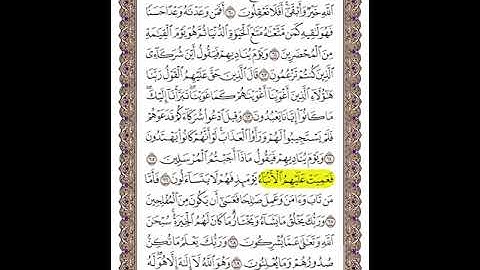 ٱللَّهِ خَيْرٌ وَأَبْقَىٰٓ أَفَلَا تَعْقِلُونَ ٦٠ أَفَمَن وَعَدْنَٰهُ وَعْدًا حَسَنًا
فَهُوَ لَٰقِيهِ كَمَن مَّتَّعْنَٰهُ مَتَٰعَ ٱلْحَيَوٰةِ ٱلدُّنْيَا ثُمَّ هُوَ يَوْمَ ٱلْقِيَٰمَةِ
مِنَ ٱلْمُحْضَرِينَ ٦١ وَيَوْمَ يُنَادِيهِمْ فَيَقُولُ أَيْنَ شُرَكَآءِىَ
ٱلَّذِينَ كُنتُمْ تَزْعُمُونَ ٦٢ قَالَ ٱلَّذِينَ حَقَّ عَلَيْهِمُ ٱلْقَوْلُ رَبَّنَا
هَٰٓؤُلَآءِ ٱلَّذِينَ أَغْوَيْنَآ أَغْوَيْنَٰهُمْ كَمَا غَوَيْنَا تَبَرَّأْنَآ إِلَيْكَ
مَا كَانُوٓا۟ إِيَّانَا يَعْبُدُونَ ٦٣ وَقِيلَ ٱدْعُوا۟ شُرَكَآءَكُمْ فَدَعَوْهُمْ
فَلَمْ يَسْتَجِيبُوا۟ لَهُمْ وَرَأَوُا۟ ٱلْعَذَابَ لَوْ أَنَّهُمْ كَانُوا۟ يَهْتَدُونَ
٦٤ وَيَوْمَ يُنَادِيهِمْ فَيَقُولُ مَاذَآ أَجَبْتُمُ ٱلْمُرْسَلِينَ ٦٥
فَعَمِيَتْ عَلَيْهِمُ ٱلْأَنۢبَآءُ يَوْمَئِذٍ فَهُمْ لَا يَتَسَآءَلُونَ ٦٦ فَأَمَّا
مَن تَابَ وَءَامَنَ وَعَمِلَ صَٰلِحًا فَعَسَىٰٓ أَن يَكُونَ مِنَ ٱلْمُفْلِحِينَ
٦٧ وَرَبُّكَ يَخْلُقُ مَا يَشَآءُ وَيَخْتَارُ مَا كَانَ لَهُمُ ٱلْخِيَرَةُ سُبْحَٰنَ
ٱللَّهِ وَتَعَٰلَىٰ عَمَّا يُشْرِكُونَ ٦٨ وَرَبُّكَ يَعْلَمُ مَا تُكِنُّ
صُدُورُهُمْ وَمَا يُعْلِنُونَ ٦٩ وَهُوَ ٱللَّهُ لَآ إِلَٰهَ إِلَّا هُوَ لَهُ